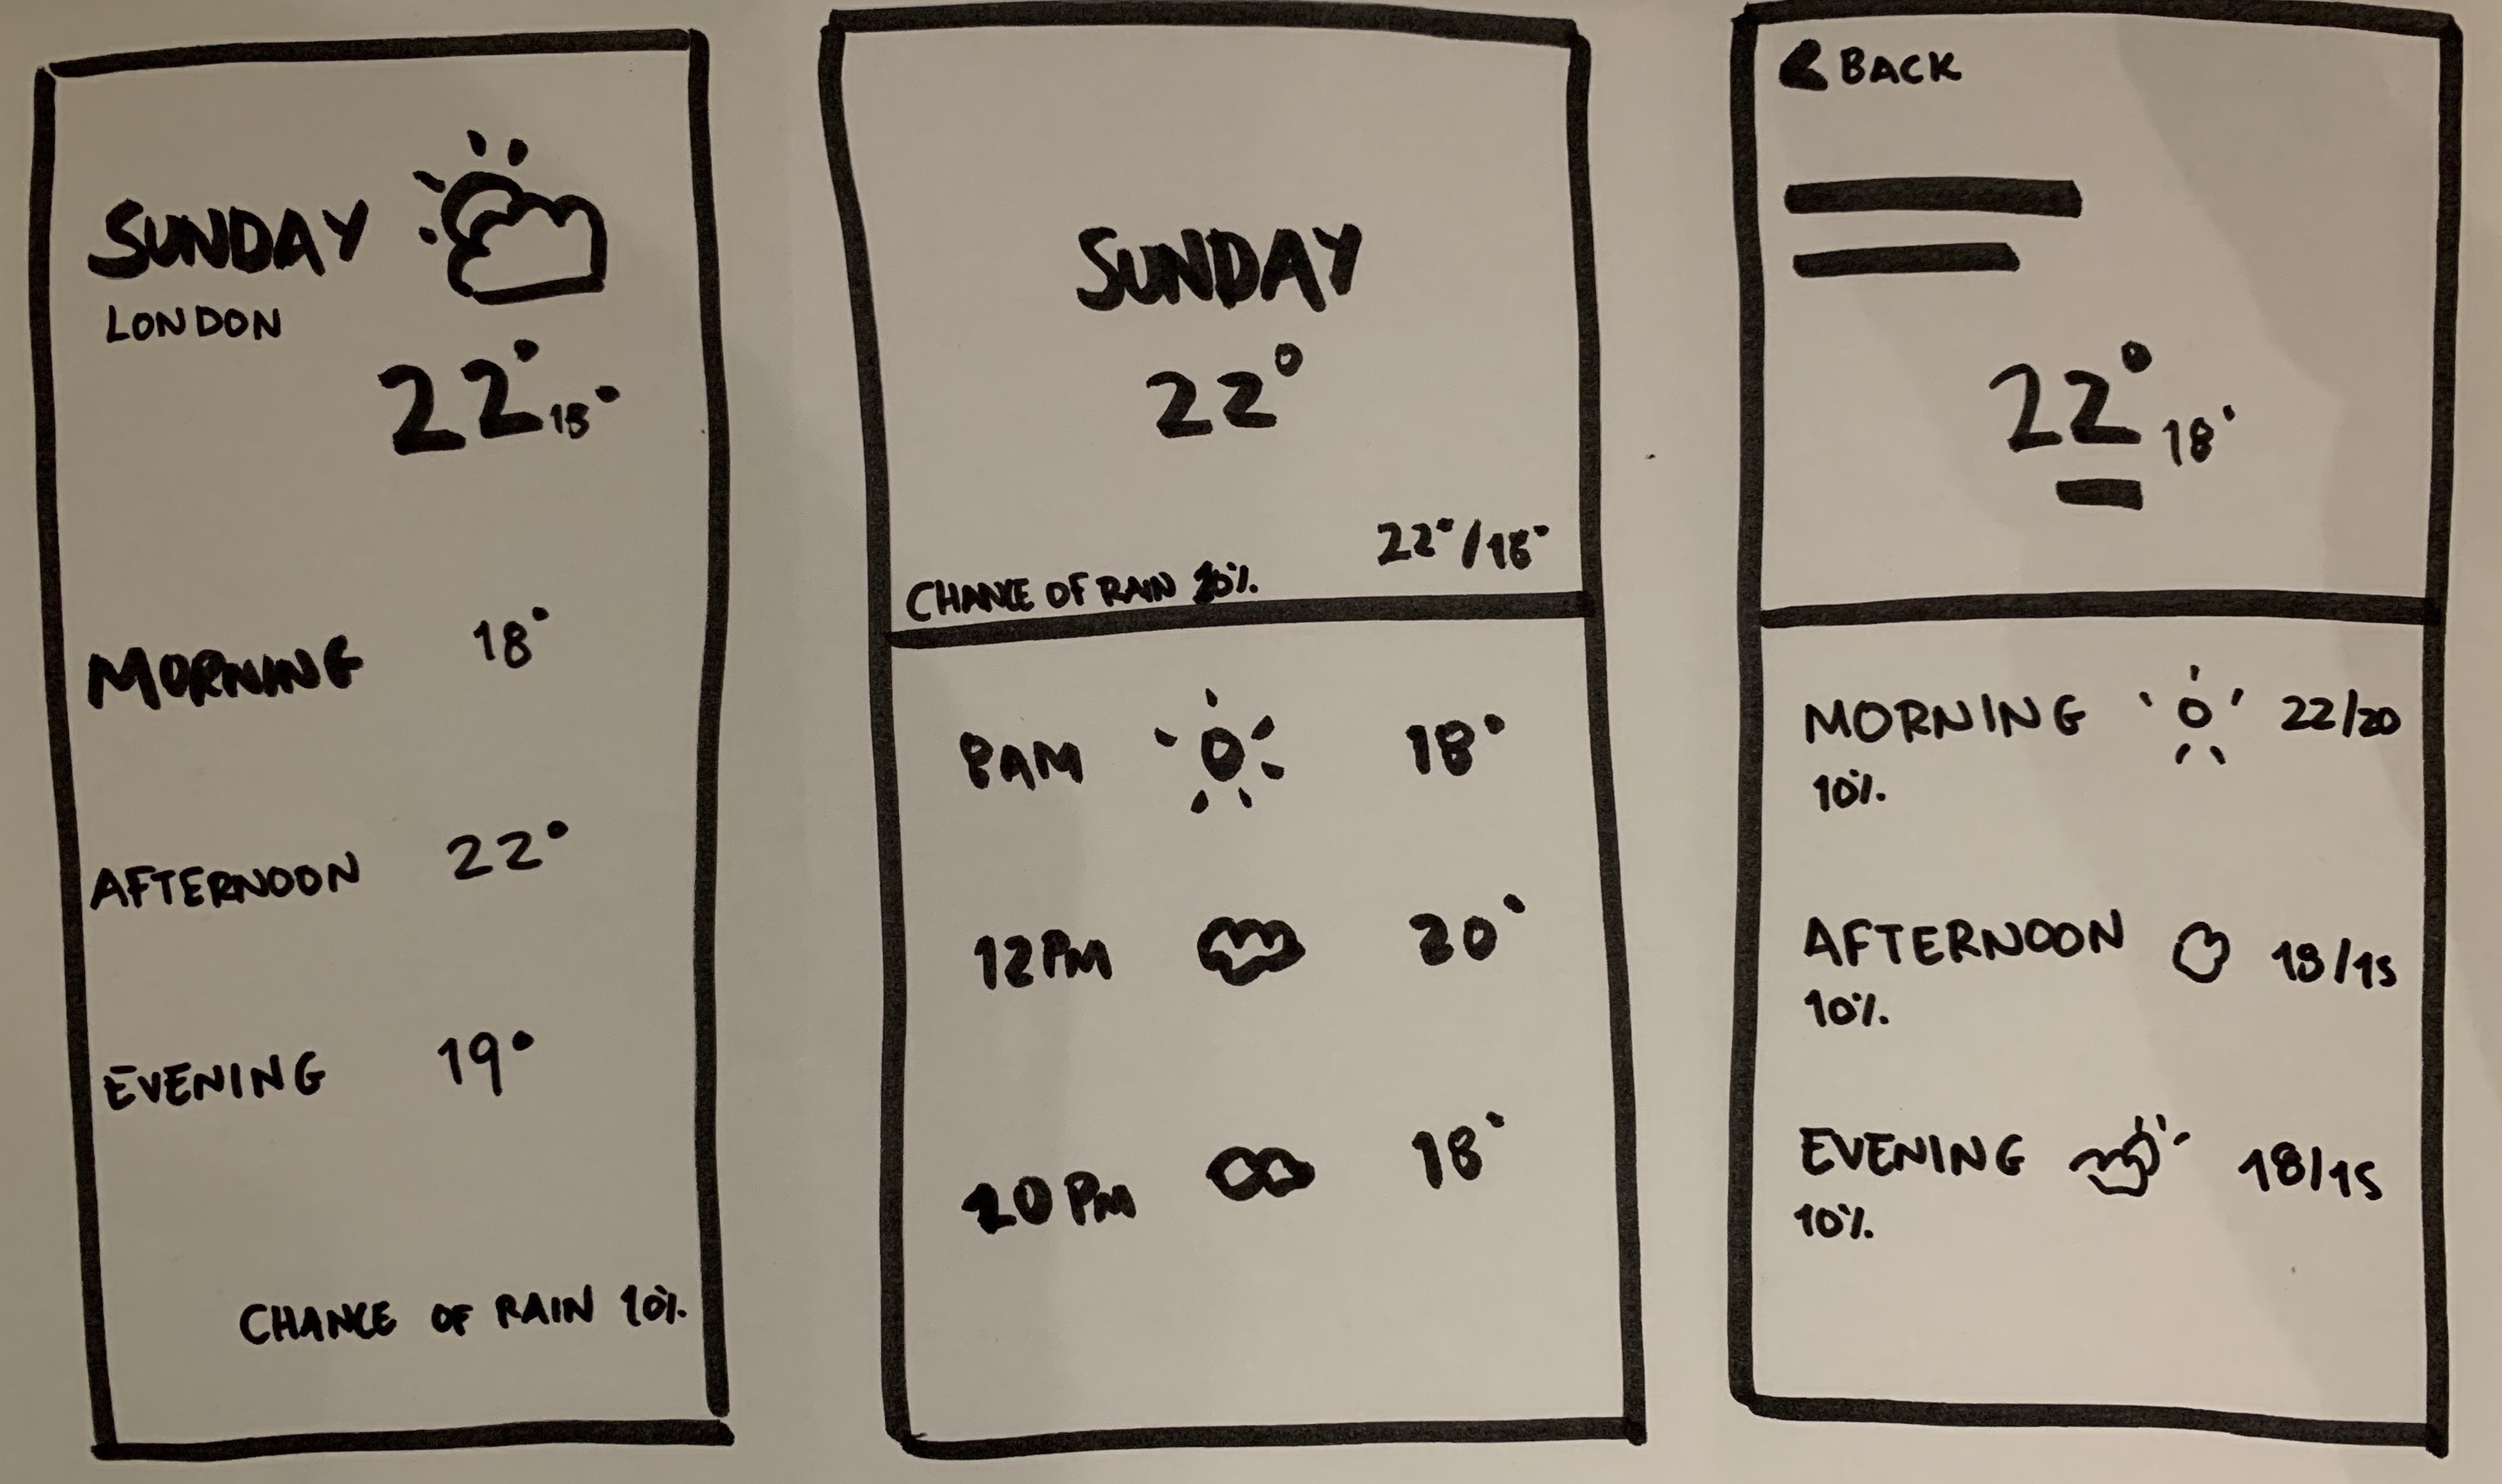 SUNDAY
LONDON
22° 18°
MORNING 18°
AFTERNOON 22°
EVENING 19°
CHANCE OF RAIN 10%
SUNDAY
22°
22°/18°
CHANCE OF RAIN
8AM 18°
12PM 20°
20PM 18°
BACK
22° 18°
MORNING 22/20
10%
AFTERNOON 18/15
10%
EVENING 18/15
10%